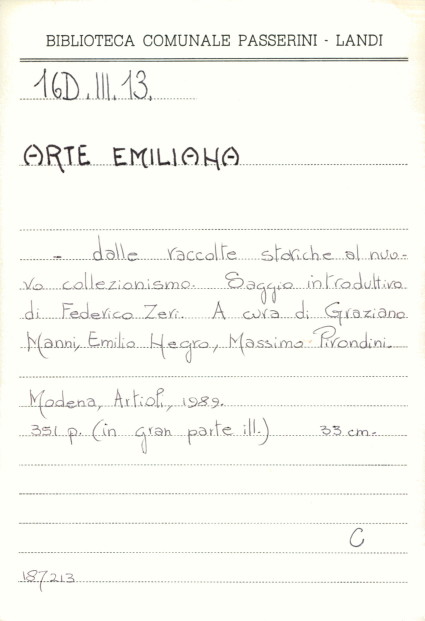 BIBLIOTECA COMUNALE PASSERINI - LANDI
16D.III.13.
ARTE EMILIANA
- dalle raccolte storiche al nuo-
vo collezionismo. Saggio introduttivo
di Federico Zeri. A cura di Graziano
Manni, Emilio Negro, Massimo Pirondini.
Modena, Artioli, 1989.
351 p. (in gran parte ill.) 33 cm.
C
187213